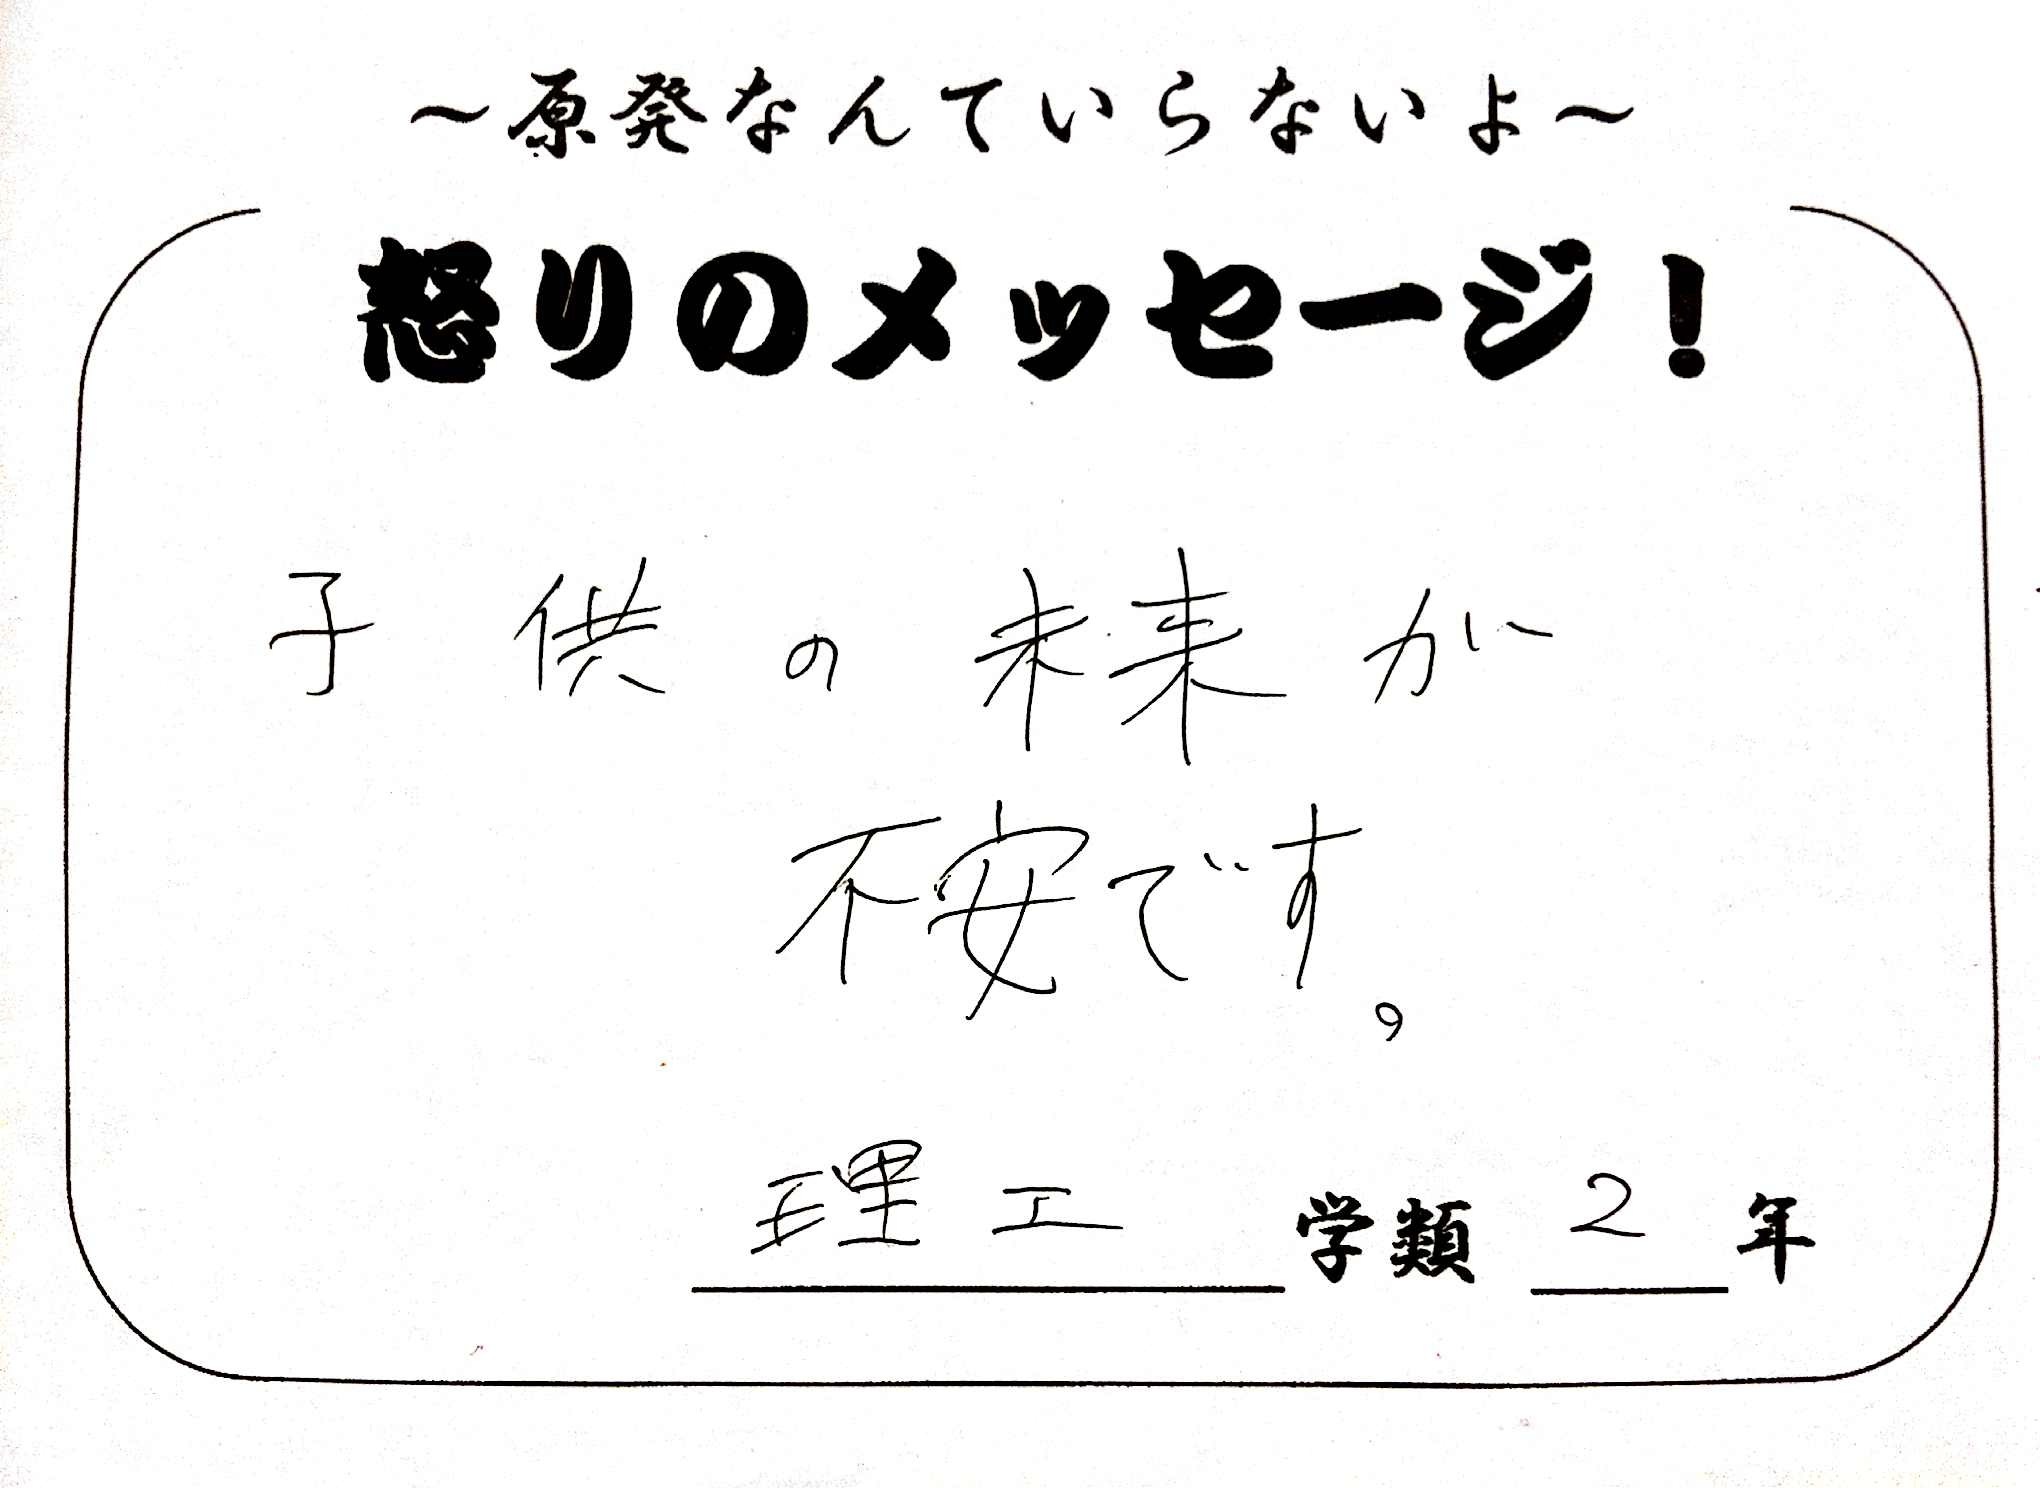 ～原発なんていらないよ～
怒りのメッセージ！
子供の未来が
不安です。
理工学類 2年